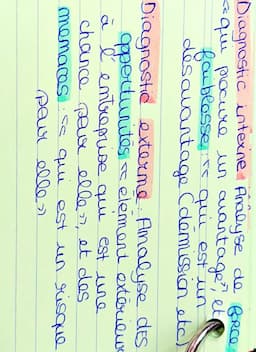 Diagnostic interne : Analyse de force
<< qui procure un avantage >>, et
faiblesse << qui est un
désavantage (démission etc)
Diagnostic externe : Analyse des
opportunités = élément extérieur
à l'entreprise qui est une
chance pour elle >>, et des
menaces << qui est un risque
pour elle >>